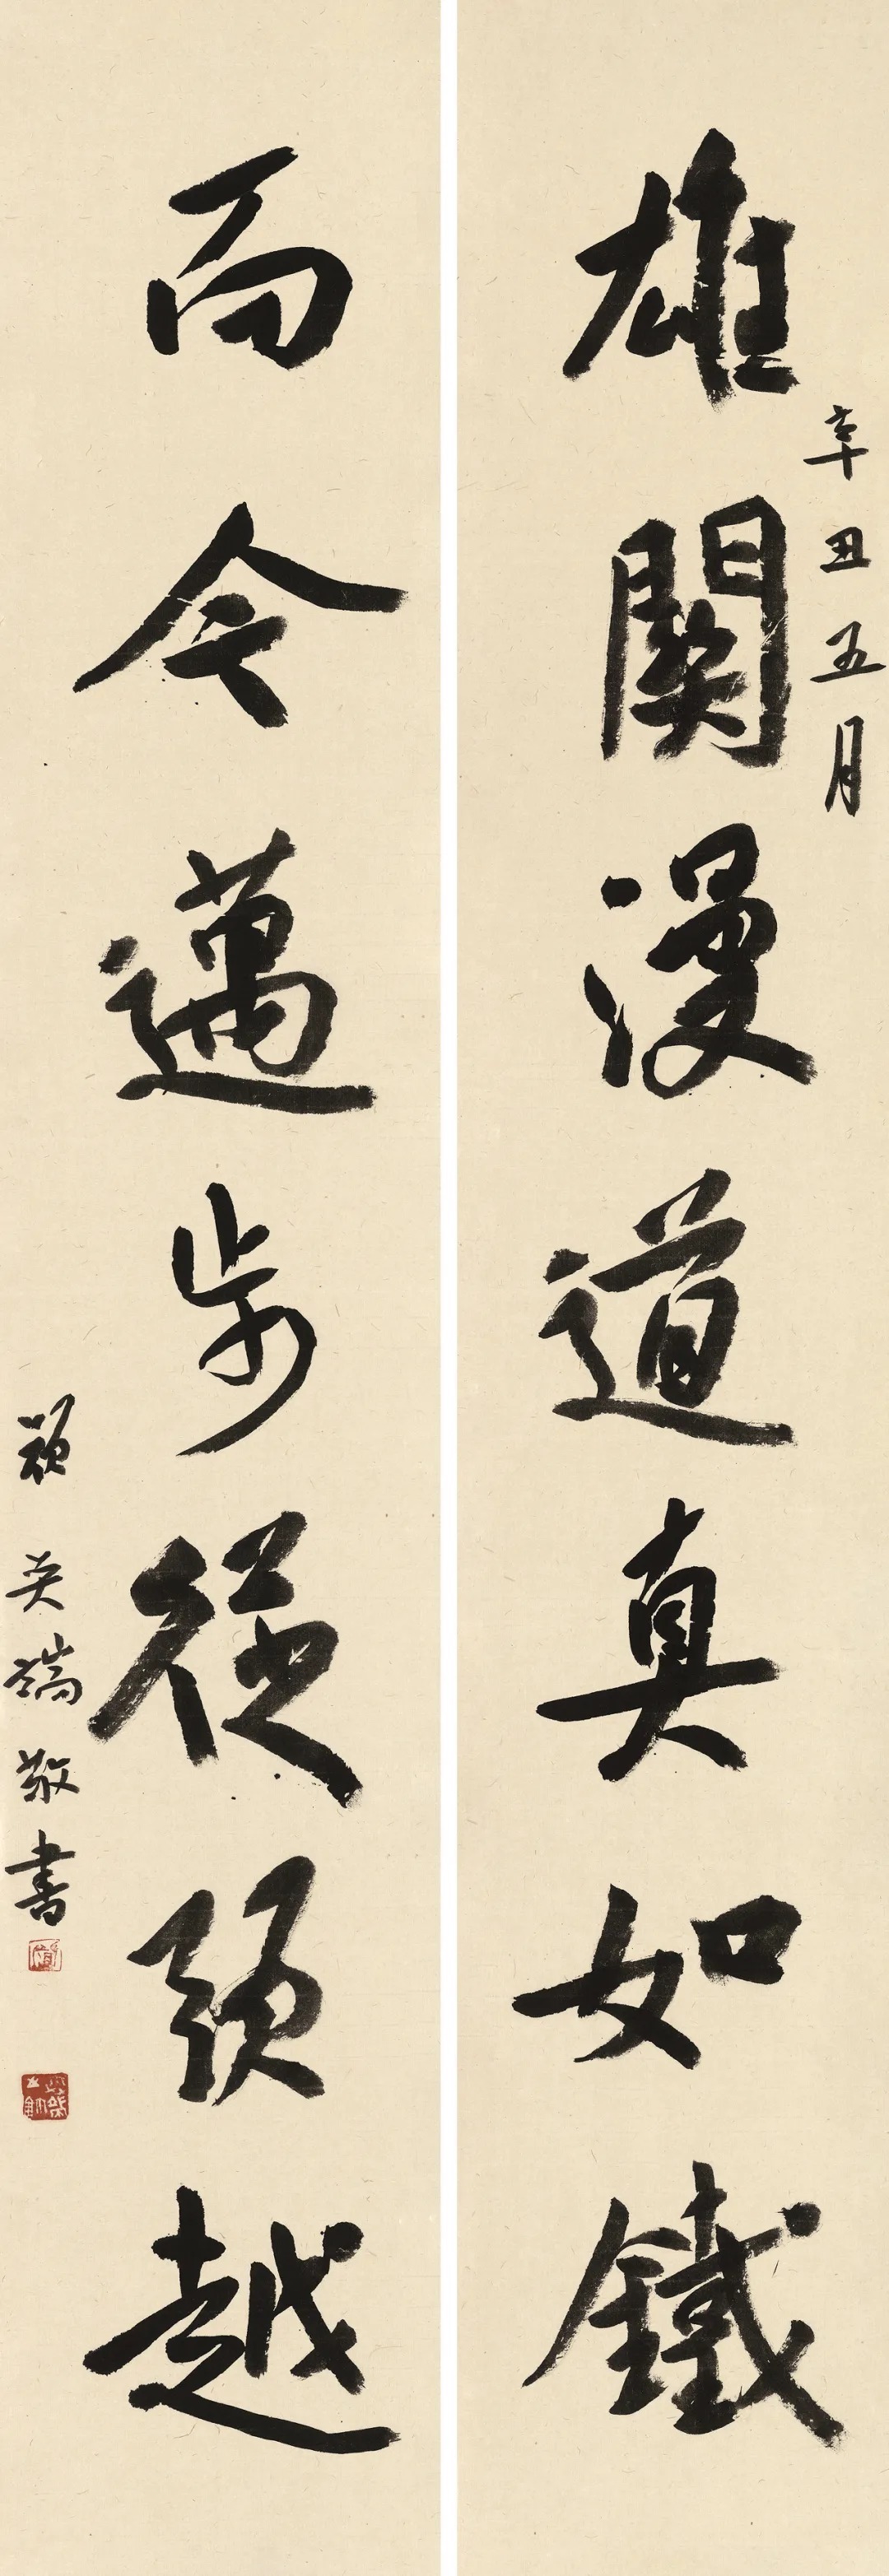 雄關漫道真如鐵
辛丑五月
而今邁步從頭越
端敬書